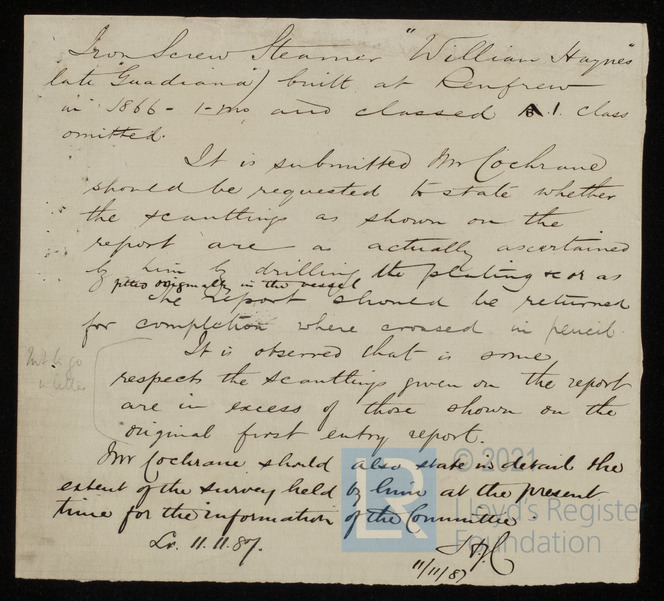 Iron Screw Steamer "William Haynes"
late "Guadiana") built at Renfrew
in 1866 - 1 - mo and classed A.1. class
omitted.
It is submitted Mr Cochrane
should be requested to state whether
the scantlings as shown on the
report are as actually ascertained
by him by drilling the plating &c or as
fitted originally in the vessel
The report should be returned
for completion where crossed in pencil.
It is observed that in some
respects the scantlings given on the report
are in excess of those shown on the
original first entry report.
Not to go
in letter
Mr Cochrane should also state in detail the
extent of the survey held by him at the present
time for the information of the Committee.
Lr. 11.11.87.
11/11/87
© 2021
LR
Lloyd's Register
Foundation